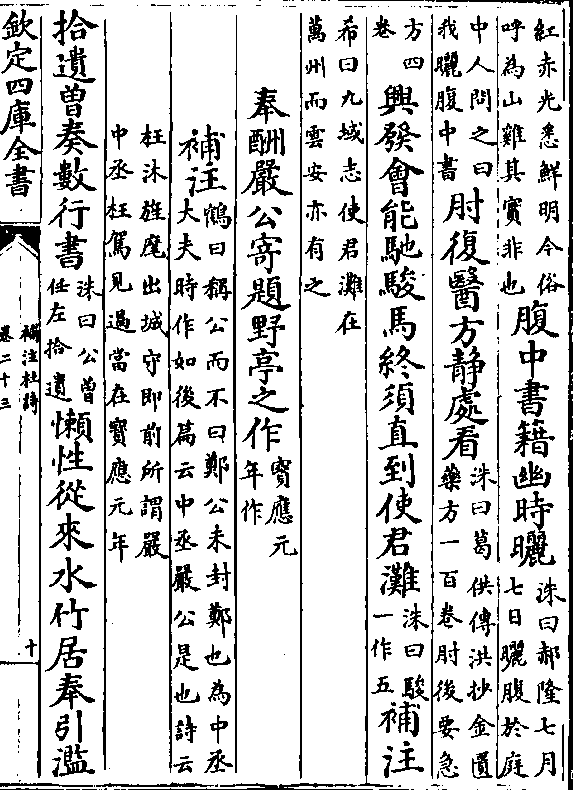 紅赤光悉鮮明今俗
呼為山雞其實非也
腹中書籍幽時曬
洙曰郝隆七月
七日曬腹於庭
中人問之曰
我曬腹中書
肘復醫方静處看
洙曰葛供傳洪抄金匱
藥方一百卷肘後要急
方四
卷
興發會能馳駿馬終須直到使君灘
洙曰駿
一作五
補注
希曰九域志使君灘在
萬州而雲安亦有之
奉酬嚴公寄題野亭之作
寳應元
年作
補注
鶴曰稱公而不曰鄭公未封鄭也為中丞
大夫時作如後篇云中丞嚴公是也詩云
枉沐旌麾出城守即前所謂嚴
中丞枉駕見過當在寳應元年
拾遺曽奏數行書
洙曰公曽
任左拾遺
懶性從來水竹居奉引濫
欽定四庫全書
補注杜詩
卷二十三
十